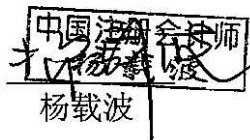 中国注册会计师
杨载波
杨载波